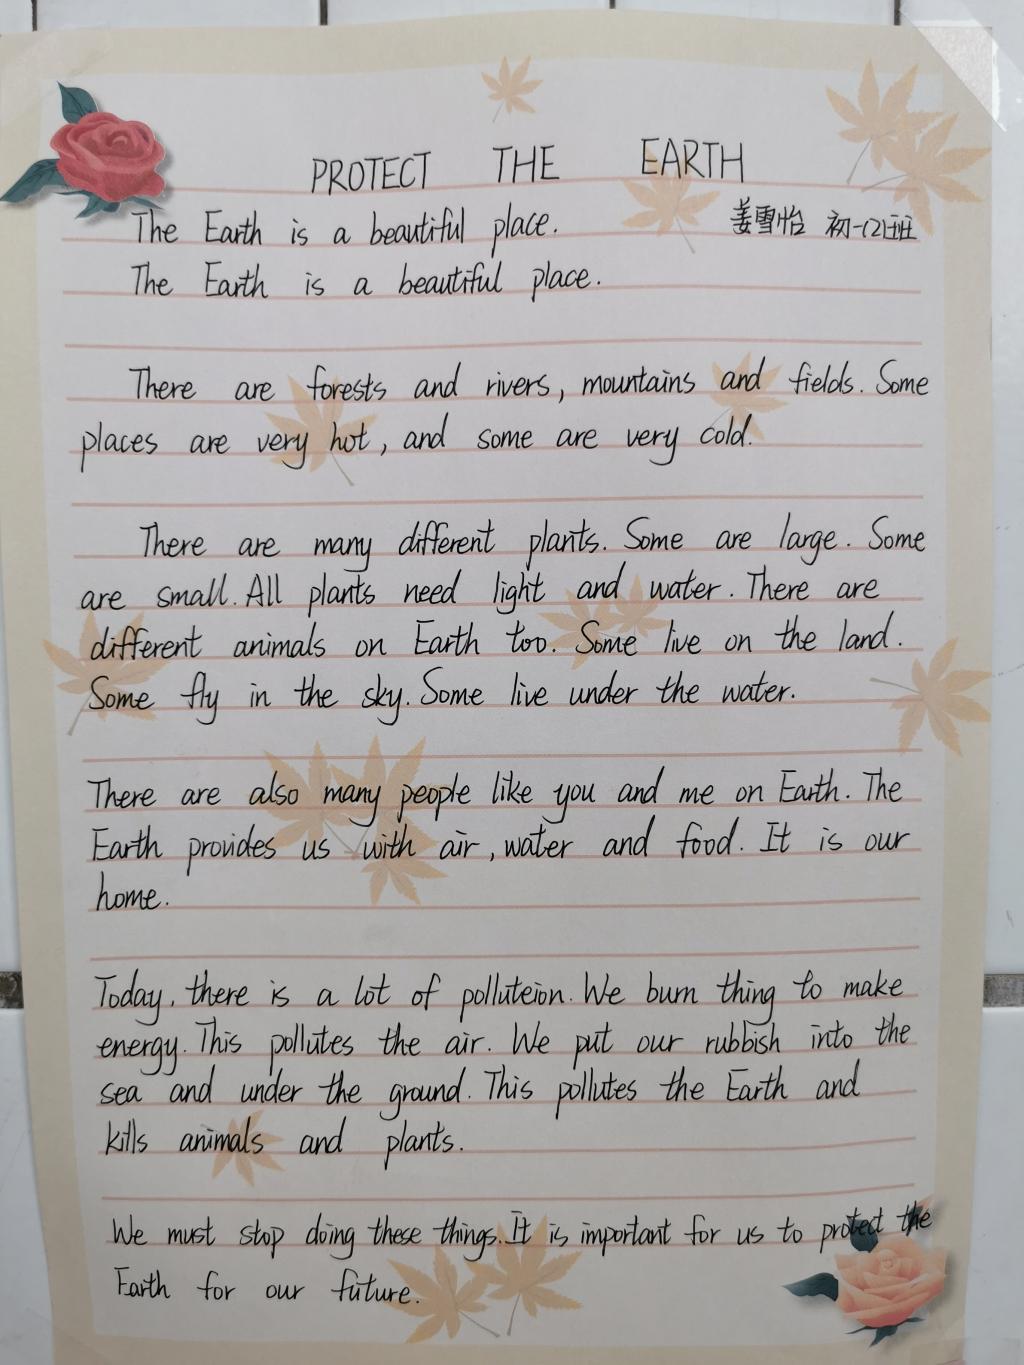 PROTECT THE EARTH
The Earth is a beautiful place. 姜雪怡 初一(2)班
The Earth is a beautiful place.
There are forests and rivers, mountains and fields. Some
places are very hot, and some are very cold.
There are many different plants. Some are large. Some
are small. All plants need light and water. There are
different animals on Earth too. Some live on the land.
Some fly in the sky. Some live under the water.
There are also many people like you and me on Earth. The
Earth provides us with air, water and food. It is our
home.
Today, there is a lot of polluteion. We burn thing to make
energy. This pollutes the air. We put our rubbish into the
sea and under the ground. This pollutes the Earth and
kills animals and plants.
We must stop doing these things. It is important for us to protect the
Earth for our future.